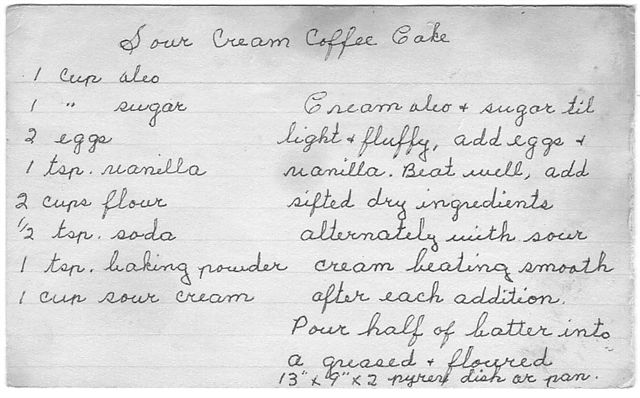 Sour Cream Coffee Cake
1 cup oleo
1 " sugar
2 eggs
1 tsp. vanilla
2 cups flour
1/2 tsp. soda
1 tsp. baking powder
1 cup sour cream
Cream oleo + sugar til
light + fluffy, add eggs +
vanilla. Beat well, add
sifted dry ingredients
alternately with sour
cream beating smooth
after each addition.
Pour half of batter into
a greased + floured
13" x 9" x 2 pyrex dish or pan.